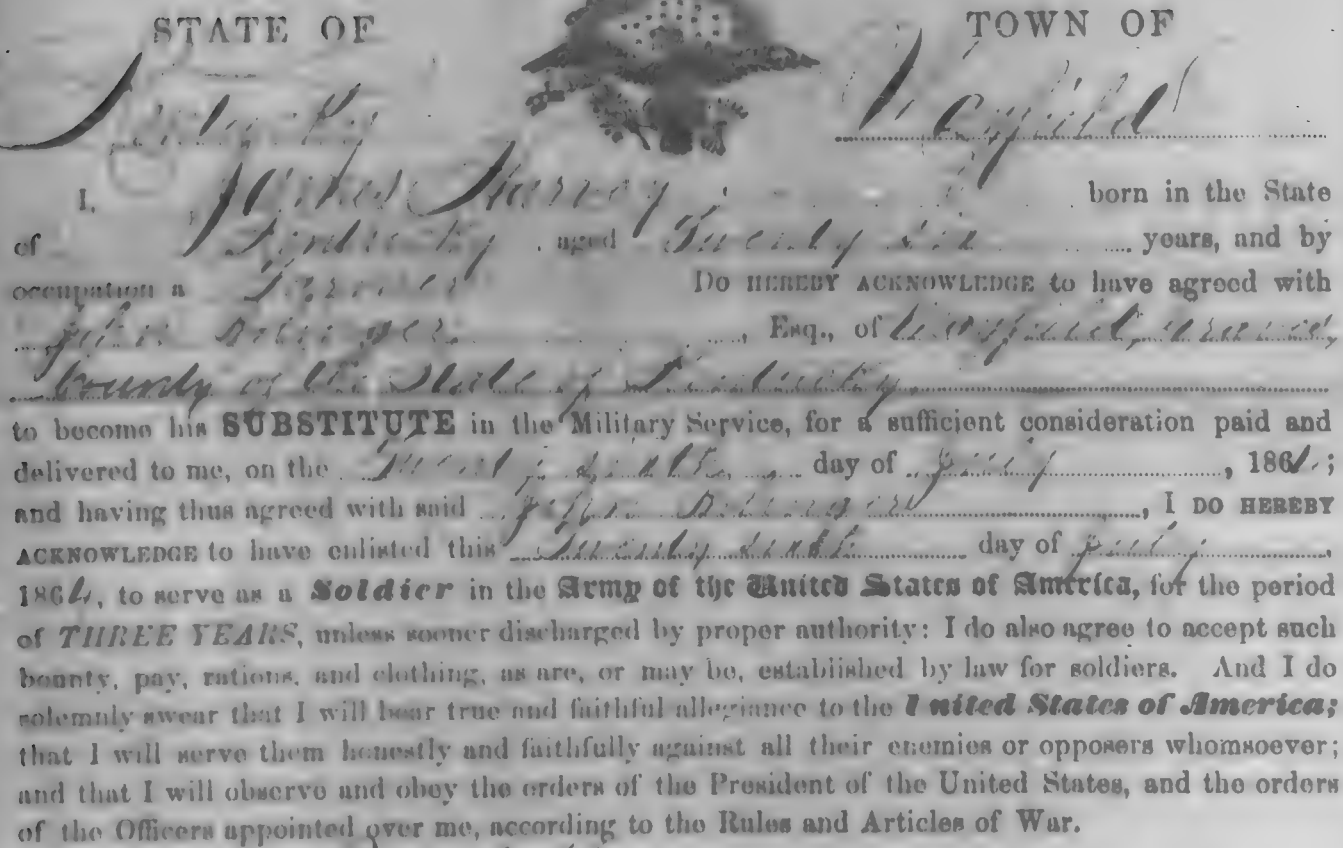 STATE OF
TOWN OF
Kentucky
Mayfield
I, Harvey born in the State
of Kentucky, aged Twenty Six years, and by
occupation a Farmer Do HEREBY ACKNOWLEDGE to have agreed with
John , Esq., of
County of the State of Kentucky
to become his SUBSTITUTE in the Military Service, for a sufficient consideration paid and
delivered to me, on the Twenty Sixth day of July, 1864;
and having thus agreed with said John , I DO HEREBY
ACKNOWLEDGE to have enlisted this Twenty Sixth day of July,
1864, to serve as a Soldier in the Army of the United States of America, for the period
of THREE YEARS, unless sooner discharged by proper authority: I do also agree to accept such
bounty, pay, rations, and clothing, as are, or may be, established by law for soldiers. And I do
solemnly swear that I will bear true and faithful allegiance to the United States of America;
that I will serve them honestly and faithfully against all their enemies or opposers whomsoever;
and that I will observe and obey the orders of the President of the United States, and the orders
of the Officers appointed over me, according to the Rules and Articles of War.